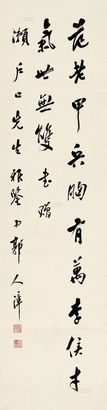 范老甲兵胸有萬李侯才
氣世無雙書贈
瀨戶口先生雅鑒 弟郭人漳